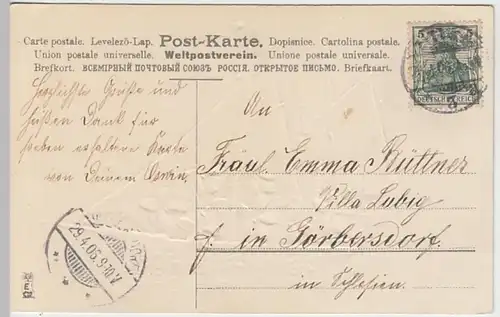 Carte postale. Levelezö-Lap. Post-Karte. Dopisnice. Cartolina postale.
Union postale universelle. Weltpostverein. Unione postale universale.
Brefkort. ВСЕМІРНЫЙ ПОЧТОВЫЙ СОЮЗЪ РОССІЯ. ОТКРЫТОЕ ПИСЬМО. Briefkaart.
5 5
DEUTSCHES REICH
Herzlichste Grüße und
süßen Dank für
soeben erhaltene Karte
von Deinem Oswin.
An
Fräul. Emma Rüttner
Villa Lubig
f. in Görbersdorf.
in Schlesien.
29.4.05. 9-10V.